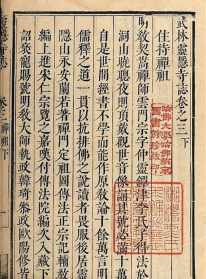 武林靈隱寺志卷之三下
住持禪祖
明教契嵩禪師雲門鐔津李氏子法於
洞山曉聰夜則頂戴觀世音像誦其號必滿十萬
自是世間經書不學而能作原教論十餘萬言明
儒釋之道一貫以抗排佛之說讀者畏服後居靈
隱永安蘭若著禪門定祖圖傳法正宗記輔教
編上進宋仁宗覽之嘉嘆付傳法院編次入藏下
詔褒寵賜號明教大師執政韓琦歐陽修皆
靈隱寺志 卷三 禪祖下